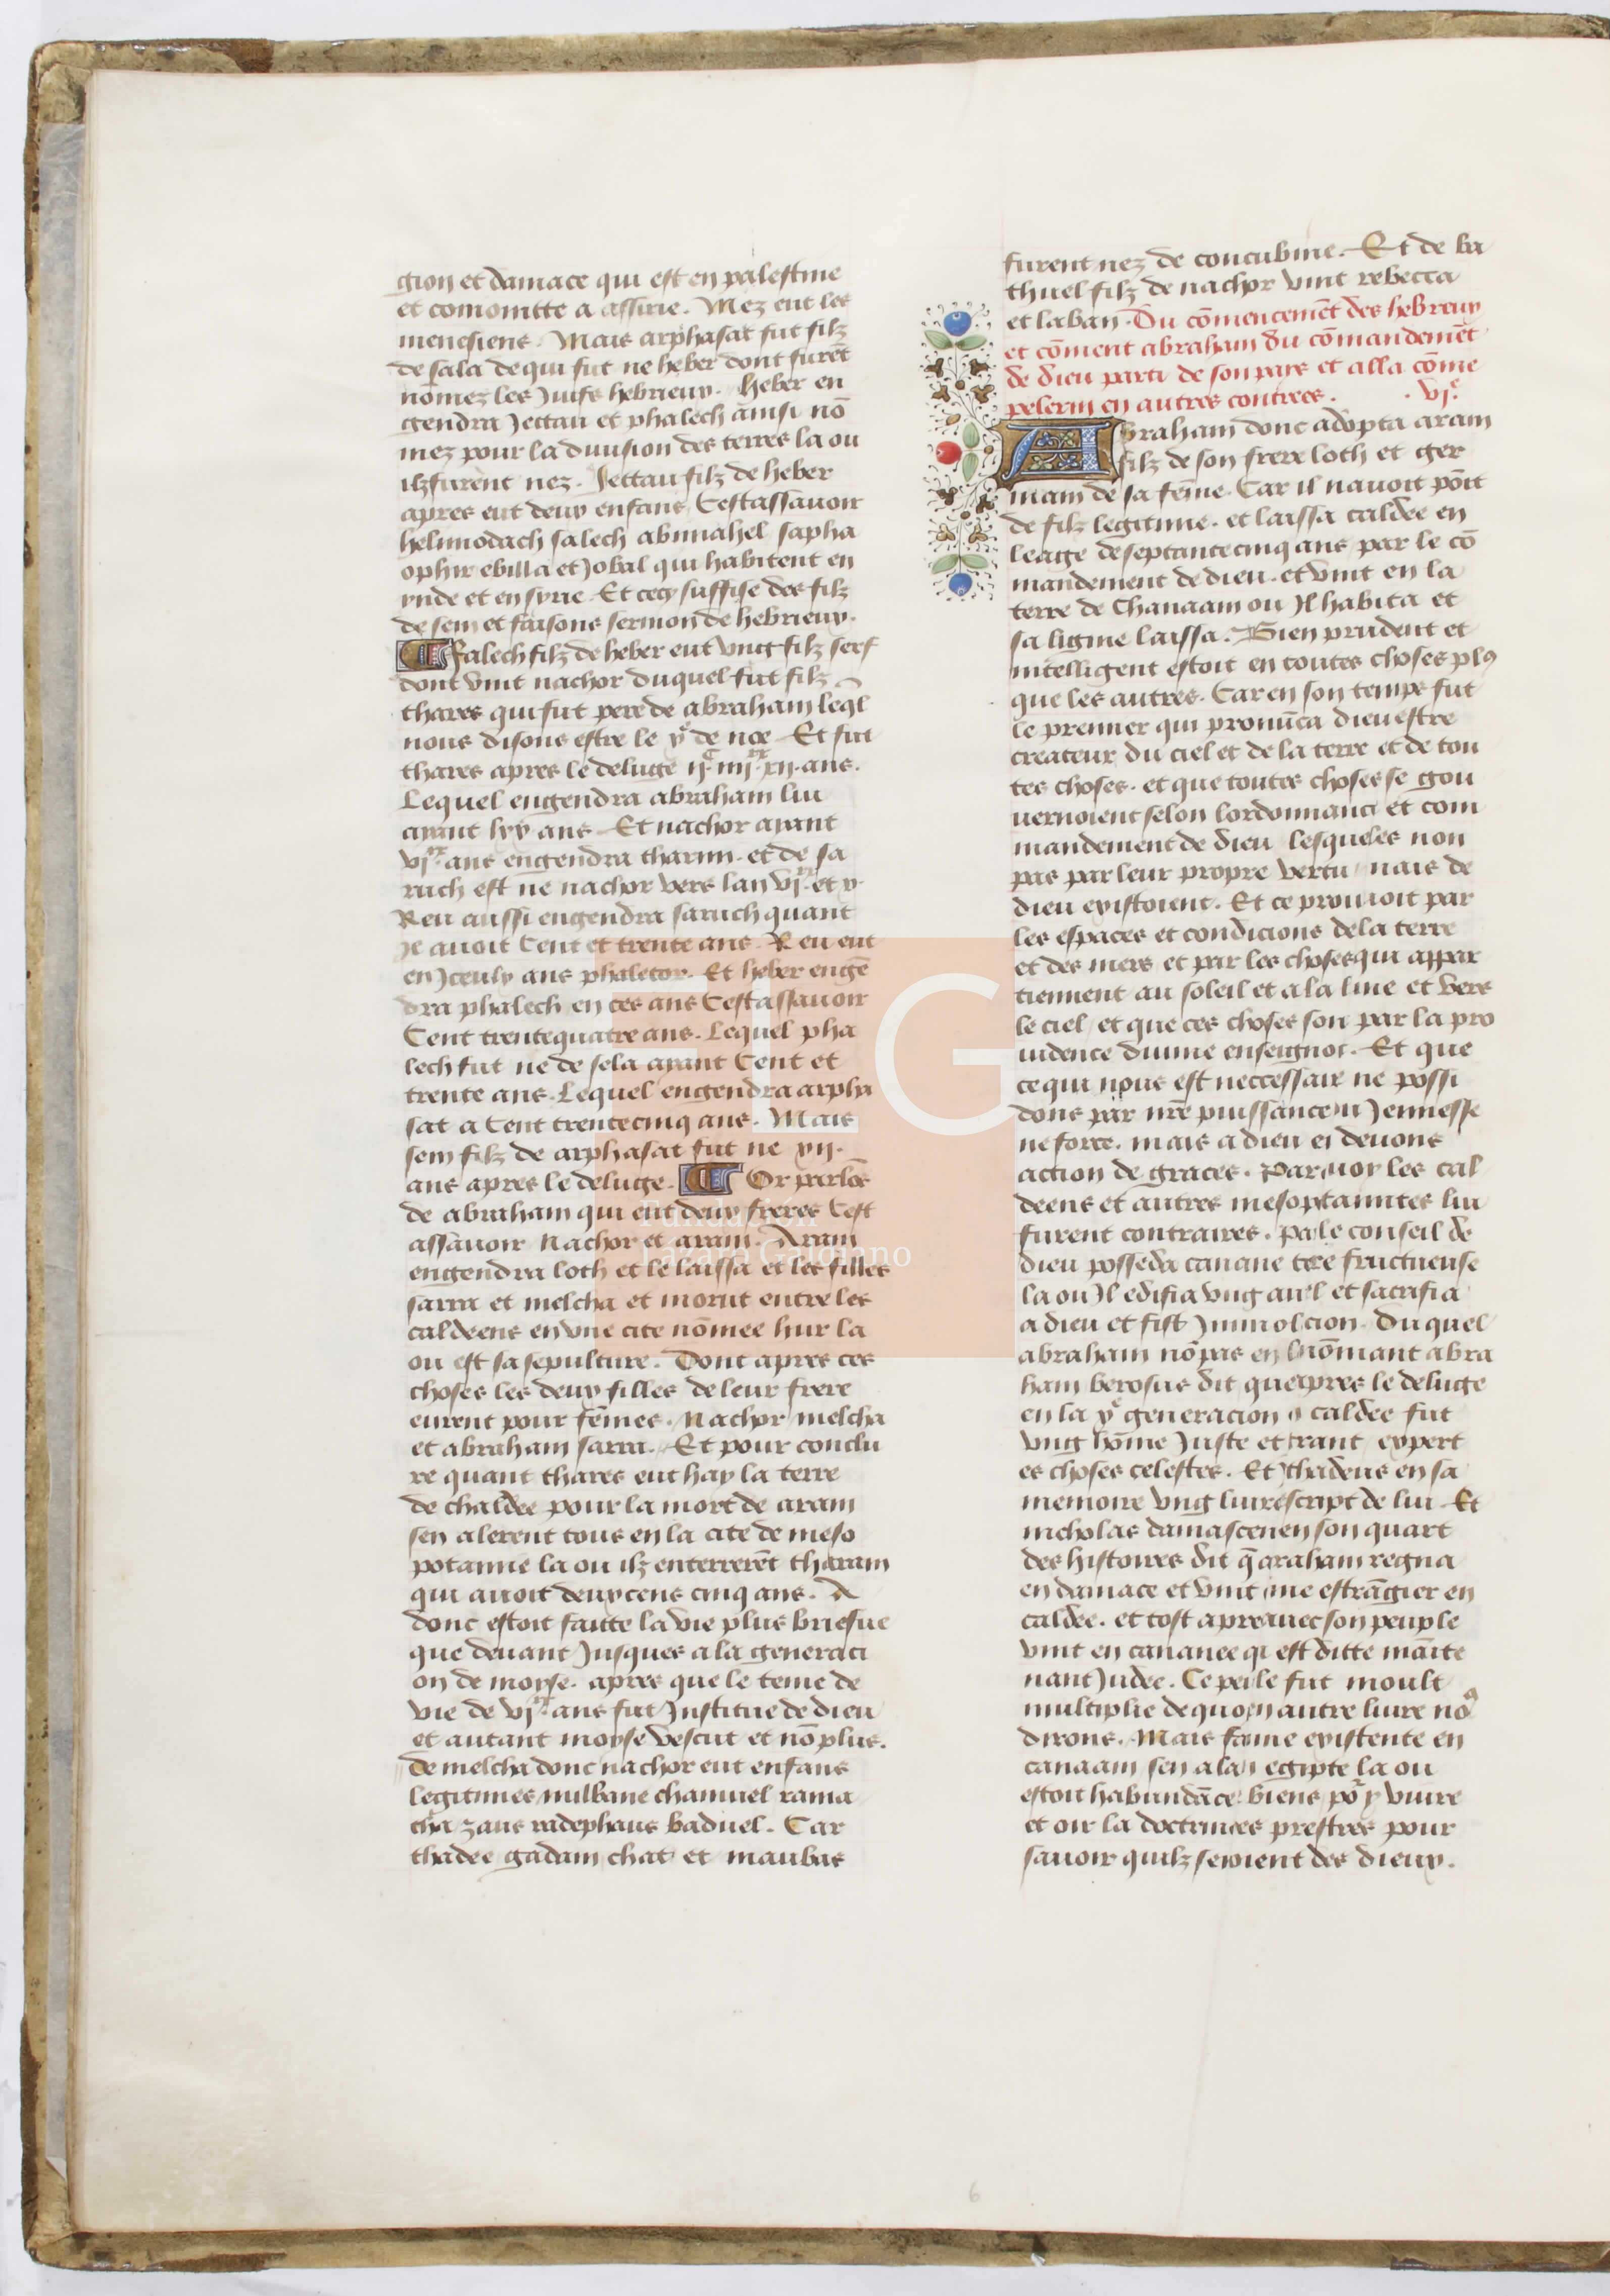 gion et damace qui est en palestine
et comomitte a assirie. Mez eut les
menesiens. Mais arphasat fut filz
de sala de qui fut ne heber dont furēt
nōmez les Juifs hebrieux. heber en
gendra Jectan et phalech ainsi nō
mez pour la diuision des terres la ou
ilz furent nez. Jettan filz de heber
apres eut deux enfans Cestassauoir
helmodach salech abimahel sapha
ophir ebilla et Jobal qui habitent en
ynde et en syrie Et cecy suffise des filz
de sem et faisons sermon de hebrieux.
Falech filz de heber eut vng filz serf
dont vint nachor duquel fut filz
thares qui fut pere de abraham leql
nous disons estre le xe de noe Et fut
thares apres le deluge ijc iiijxx xij ans.
Lequel engendra abraham lui
ayant lxx ans Et nachor ayant
vjxx ans engendra tharim. et de sa
ruch est ne nachor vers lan vjxx et x.
Reu aussi engendra saruch quant
Il auoit Cent et trente ans. Reu eut
en Jceulx ans phaletor. Et heber engē
dra phalech en ces ans Cestassauoir
Cent trentequatre ans. Lequel pha
lech fut ne de sela ayant Cent et
trente ans. Lequel engendra arpha
sat a Cent trentecinq ans. Mais
sem filz de arphasat fut ne xij.
ans apres le deluge. Or parlōs
de abraham qui eut deux freres Cest
assauoir Nachor et aram. Aram
engendra loth et le laissa et les filles
sarra et melcha et morut entre les
caldeens en vne cite nōmee hur la
ou est sa sepulture. Dont apres ces
choses les deux filles de leur frere
eurent pour fēmes. Nachor melcha
et abraham sarra. Et pour conclu
re quant thares eut hay la terre
de chaldee pour la mort de aram
sen alerent tous en la cite de meso
potamie la ou ilz enterrerēt tharam
qui auoit deuxcens cinq ans. A
donc estoit faitte la vie plus briefue
que deuant Jusques a la generaci
on de moyse. apres que le teme de
vie de vjxx ans fut Institue de dieu
et autant moyse vescut et nō plus.
de melcha donc nachor eut enfans
legitimes milbane chamuel rama
cha zans radephans baduel. Car
thadee gadam chat et maubas
furent nez de concubine. Et de ba
thuel filz de nachor vint rebecca
et laban. Du cōmencemēt des hebreux
et cōment abraham du cōmandemēt
de dieu parti de son pays et alla cōme
pelerin en autres contrees. . vje.
Abraham donc adopta aram
filz de son frere loth et ger
main de sa fēme. Car il nauoit pōit
de filz legitime. et laissa caldee en
leage de septantecinq ans par le cō
mandement de dieu. et vint en la
terre de Chanaam ou Il habita et
sa ligine laissa. Bien prudent et
intelligent estoit en toutes choses plus
que les autres. Car en son temps fut
le premier qui pronūca dieu estre
createur du ciel et de la terre et de tou
tes choses. et que toutes choses se gou
uernoient selon lordonnanci et com
mandement de dieu lesqueles non
pas par leur propre vertu mais de
dieu existoient. Et ce prouuoit par
les espaces et condicions de la terre
et des mers et par les choses qui appar
tiennent au soleil et a la lune et vers
le ciel et que ces choses son par la pro
uidence diuine enseignot. Et que
ce qui nous est neccessair ne possi
dons par nre puissance ni Jennesse
ne force. mais a dieu ei deuons
action de graces. Par quoy les cal
deens et autres mesopotamites lui
furent contraires. pa le conseil de
dieu posseda canane tere fructueuse
la ou Il edifia vng autl et sacrifia
a dieu et fist Inmolcion. Du quel
abraham nō pas en l nōmant abra
ham berosus dit que apres le deluge
en la xe generacion caldee fut
vng hōme Juste et grant expert
es choses celestes. Et thadeus en sa
memoire vng liure script de lui. Et
nicholas damascenen son quart
des histoires dit q̄ araham regna
en damace et vint cōme estrāgier en
caldee. et tost apre auec son peuple
vint en cananee qi est ditte māite
nant Judee. Ce peule fut moult
multiplie de quo en autre liure no9
dirons. Mais famie existente en
canaam sen ala n egipte la ou
estoit habundāce biens por y viure
et oir la doctrinces prestres pour
sauoir quilz sentoient des dieux.
6
Fundación
Lázaro Galdiano
G